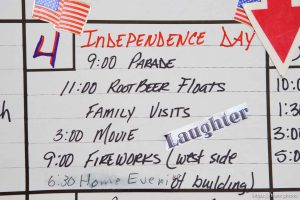 4 INDEPENDENCE DAY
9:00 PARADE
11:00 ROOTBEER FLOATS
FAMILY VISITS
3:00 MOVIE
Laughter
9:00 FIREWORKS (west side
6:30 Home Eveni of building)
10:
1: